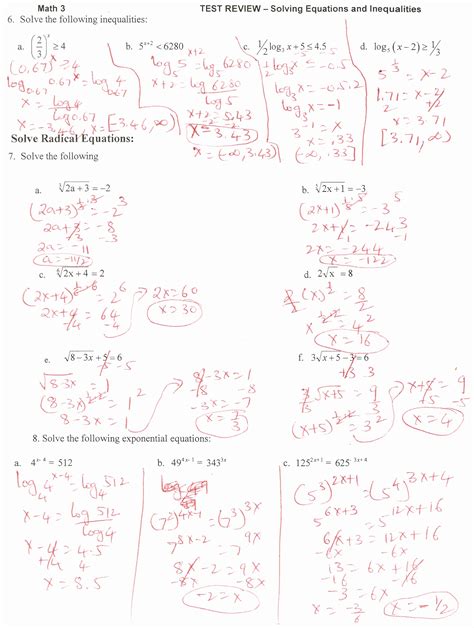 Math 3 TEST REVIEW – Solving Equations and Inequalities
6. Solve the following inequalities:
a. (2/3)^x ≥ 4
(0.67)^x = 4
log_0.67 0.67^x = log 4
x = log 4 / log 0.67
x = -3.46, x = [-3.46, ∞)
b. 5^(x+2) < 6280
log 5^(x+2) = log 6280
x+2 = log 6280 / log 5
x+2 = 5.43
x = 3.43
x = (-∞, 3.43)
c. 1/2 log₃ x + 5 ≤ 4.5
1/2 log₃ x = -0.5
log₃ x = -0.5 · 2
log₃ x = -1
3^-1 = x
x = .33
(-∞, .33]
d. log₅ (x – 2) ≥ 1/3
5^(1/3) = x-2
1.71 = x-2
+2 +2
x = 3.71
[3.71, ∞)
Solve Radical Equations:
7. Solve the following
a. ∛(2a + 3) = –2
2a+3 = -8
-3 -3
2a = -11
a = -11/2
b. ⁵√(2x + 1) = –3
2x+1 = -243
-1 -1
2x = -244
x = -122
c. ⁶√(2x + 4) = 2
2x+4 = 64
-4 -4
2x = 60
x = 30
d. 2√x = 8
x = 4²
x = 16
e. √(8 – 3x) + 5 = 6
-5 -5
√(8-3x) = 1
8-3x = 1
8-3x = 1
-8 -8
-3x = -7
x = 7/3
f. 3√(x + 5) – 3 = 6
+3 3
3√(x+5) = 9
x+5 = 9
-5 -5
x = 4
8. Solve the following exponential equations:
a. 4^(x-4) = 512
log 4^(x-4) = log 512
x-4 = log 512 / log 4
x-4 = 4.5
+4 4
x = 8.5
b. 49^(4x-1) = 343^(3x)
(7²)^(4x-1) = (7³)^(3x)
7^(8x-2) = 7^(9x)
8x-2 = 9x
-8x -8x
-2 = x
c. 125^(2x+1) = 625^(3x+4)
(5³)^(2x+1) = (5⁴)^(3x+4)
5^(6x+3) = 5^(12x+16)
6x+3 = 12x+16
-6x -6x
3 = 6x+16
-16 -16
x = -1/2